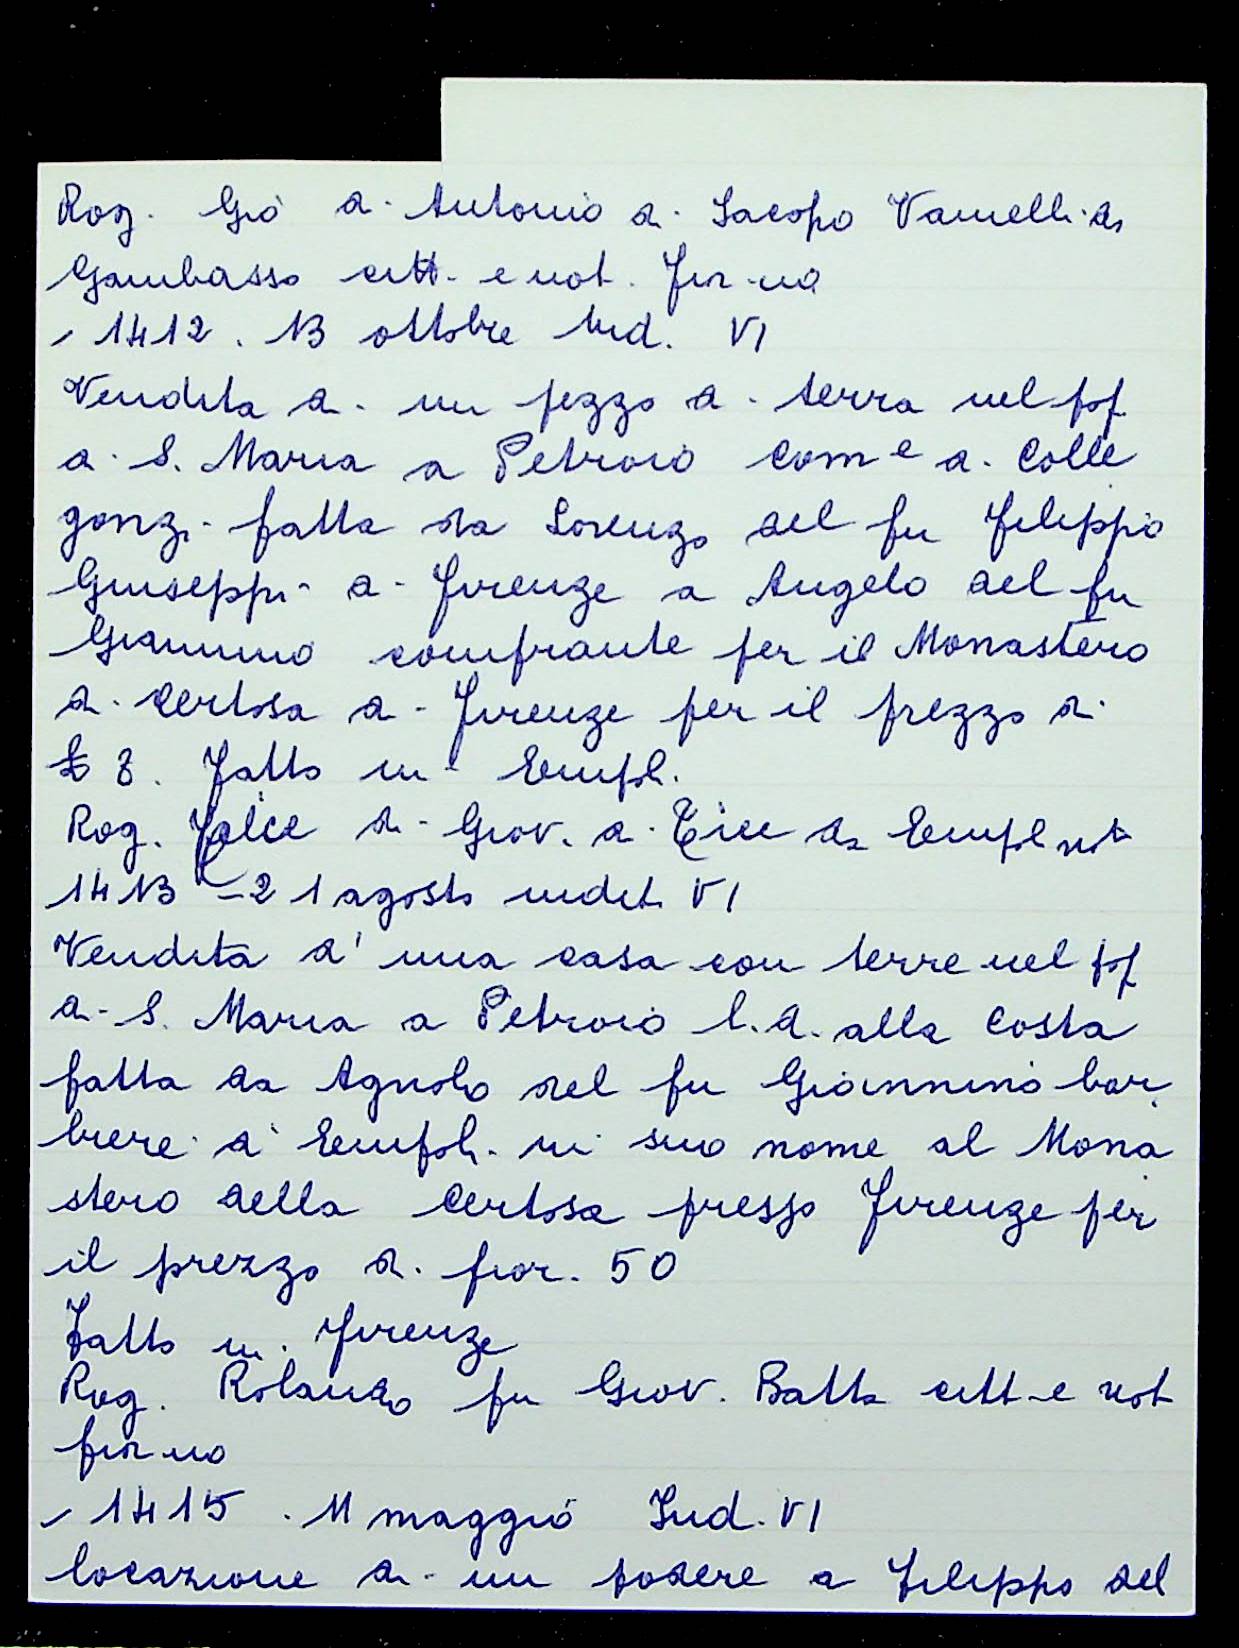 Rog. Gio di Antonio di Jacopo Vannelli da
Gambasso citt. e not. fior.no
- 1412. 13 ottobre Ind. VI
Vendita di un pezzo di terra nel pop
di S. Maria a Petroio com e di Colle
gonzi fatta da Lorenzo del fu Filippo
Giuseppi di Firenze a Angelo del fu
Giannino comprante per il Monastero
di Certosa di Firenze per il prezzo di
£ 8. Fatto in Empoli.
Rog. Felice di Giov. di da Empoli not
1413 - 21 agosto indet. VI
Vendita d' una casa con terre nel pop
di S. Maria a Petroio l.d. alla Costa
fatta da Agnolo del fu Giannino bar
biere di Empoli in suo nome al Mona
stero della Certosa presso Firenze per
il prezzo di fior. 50
Fatto in Firenze
Rog. Rolando fu Giov. Batta citt e not
fior no
- 1415. 11 maggio Ind. VI
locazione di un podere a Filippo del